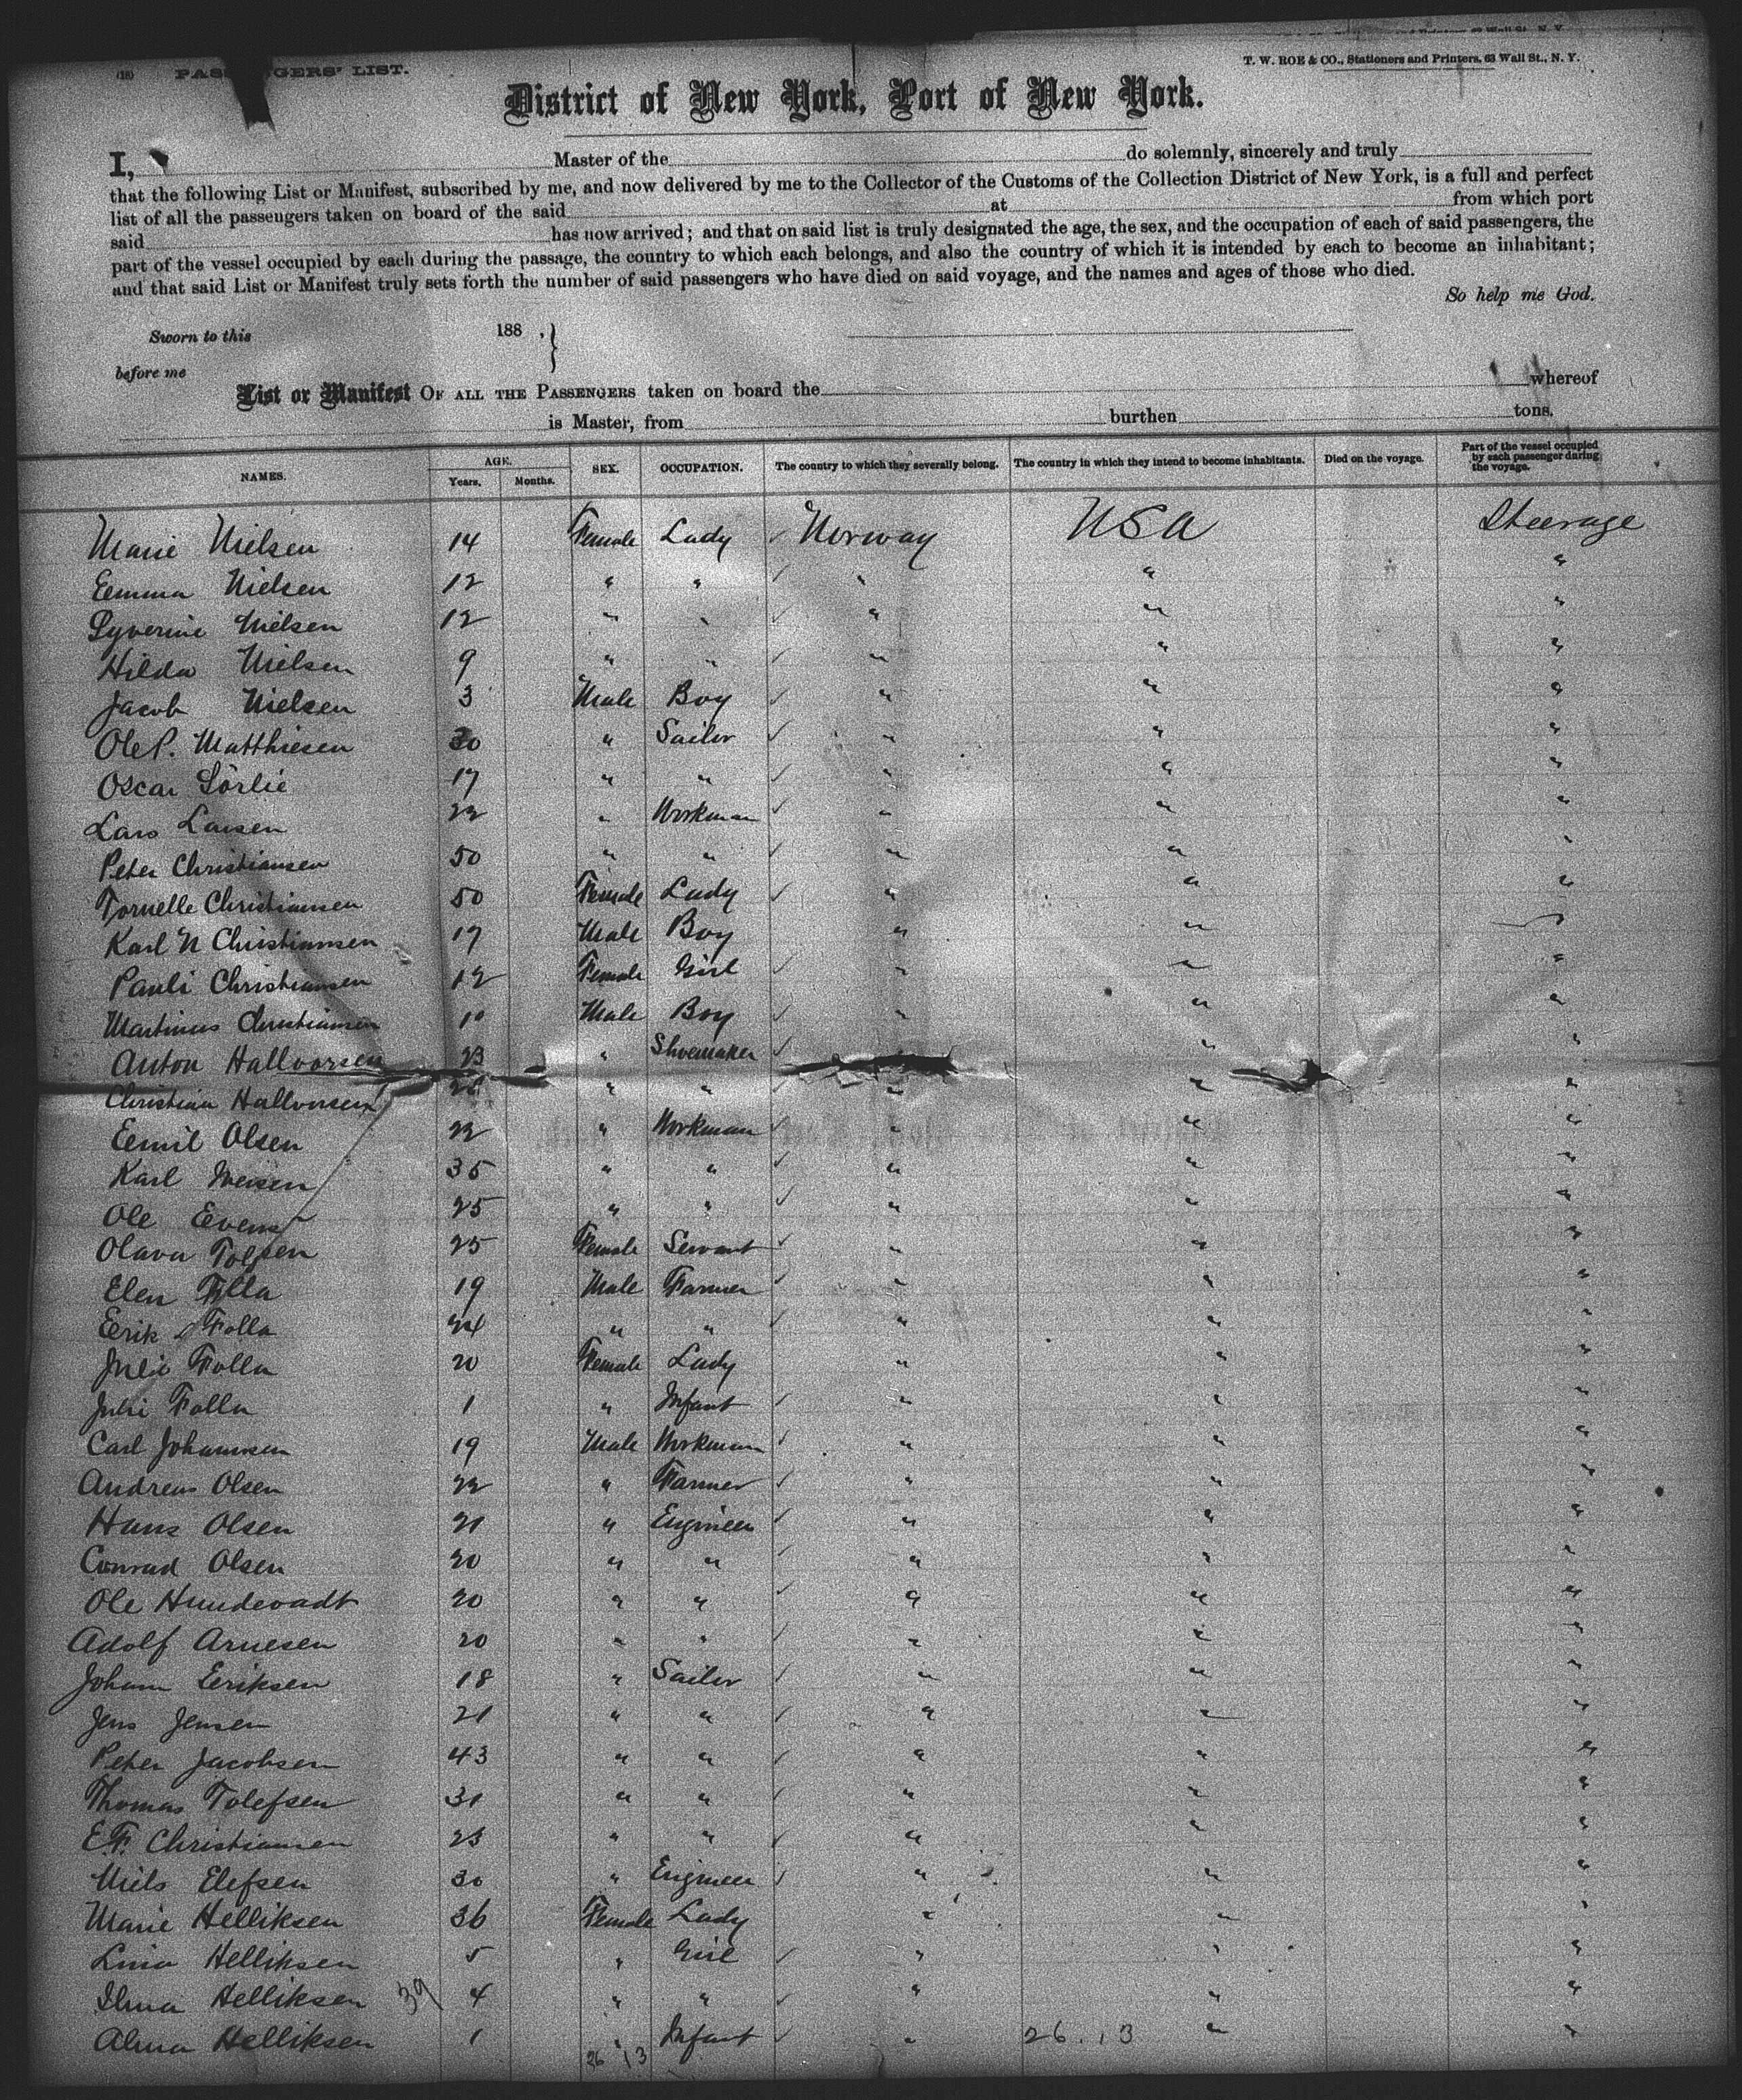 (18) PASSENGERS' LIST.
T. W. ROE & CO., Stationers and Printers, 63 Wall St., N. Y.
District of New York, Port of New York.
I, Master of the do solemnly, sincerely and truly
that the following List or Manifest, subscribed by me, and now delivered by me to the Collector of the Customs of the Collection District of New York, is a full and perfect
list of all the passengers taken on board of the said at from which port
said has now arrived; and that on said list is truly designated the age, the sex, and the occupation of each of said passengers, the
part of the vessel occupied by each during the passage, the country to which each belongs, and also the country of which it is intended by each to become an inhabitant;
and that said List or Manifest truly sets forth the number of said passengers who have died on said voyage, and the names and ages of those who died.
So help me God.
Sworn to this 188 ,}
before me
List or Manifest OF ALL THE PASSENGERS taken on board the whereof
is Master, from burthen tons.
NAMES. AGE. Years. Months. SEX. OCCUPATION. The country to which they severally belong. The country in which they intend to become inhabitants. Died on the voyage. Part of the vessel occupied by each passenger during the voyage.
Marie Nielsen 14 Female Lady ✓ Norway USA Steerage
Eemma Nielsen 12 " " ✓ " " "
Syverine Nielsen 12 " " ✓ " " "
Hilda Nielsen 9 " " ✓ " " "
Jacob Nielsen 3 Male Boy ✓ " " "
Ole P. Matthiesen 30 " Sailor ✓ " " "
Oscar Sörlie 17 " " ✓ " " "
Lars Larsen 22 " Workman ✓ " " "
Peter Christiansen 50 " " ✓ " " "
Tornelle Christiansen 50 Female Lady ✓ " " "
Karl N Christiansen 17 Male Boy " " "
Pauli Christiansen 12 Female Girl ✓ " " "
Martinus Christiansen 10 Male Boy ✓ " " "
Anton Hallvorsen 23 " Shoemaker ✓ " "
Christian Hallvorsen " " ✓ " " "
Eemil Olsen 22 " Workman ✓ " " "
Karl 35 " " ✓ " " "
Ole Evens 25 " " ✓ " " "
Olava Tolfsen 25 Female Servant ✓ " " "
Elen Folla 19 Male Farmer ✓ " " "
Eerik Folla 24 " " ✓ " " "
Julie Folla 20 Female Lady " " "
Julie Folla 1 " Infant ✓ " " "
Carl Johannsen 19 Male Workman ✓ " " "
Andreas Olsen 22 " Farmer ✓ " " "
Hans Olsen 21 " Engineer ✓ " " "
Conrad Olsen 20 " " ✓ " " "
Ole Hundevadt 20 " " ✓ " " "
Adolf Arnesen 20 " " " " "
Johann Eeriksen 18 " Sailor ✓ " " "
Jens Jensen 21 " " ✓ " " "
Peter Jacobsen 43 " " ✓ " " "
Thomas Tolefsen 31 " " ✓ " " "
E.F. Christiansen 23 " " ✓ " " "
Niels Elefsen 30 " Engineer ✓ " " "
Marie Helliksen 36 Female Lady " " "
Lina Helliksen 5 " Girl ✓ " " "
Ilma Helliksen 39/ 4 " " ✓ " " "
Alma Helliksen 1 " Infant ✓ " 26.13 " "
26 13